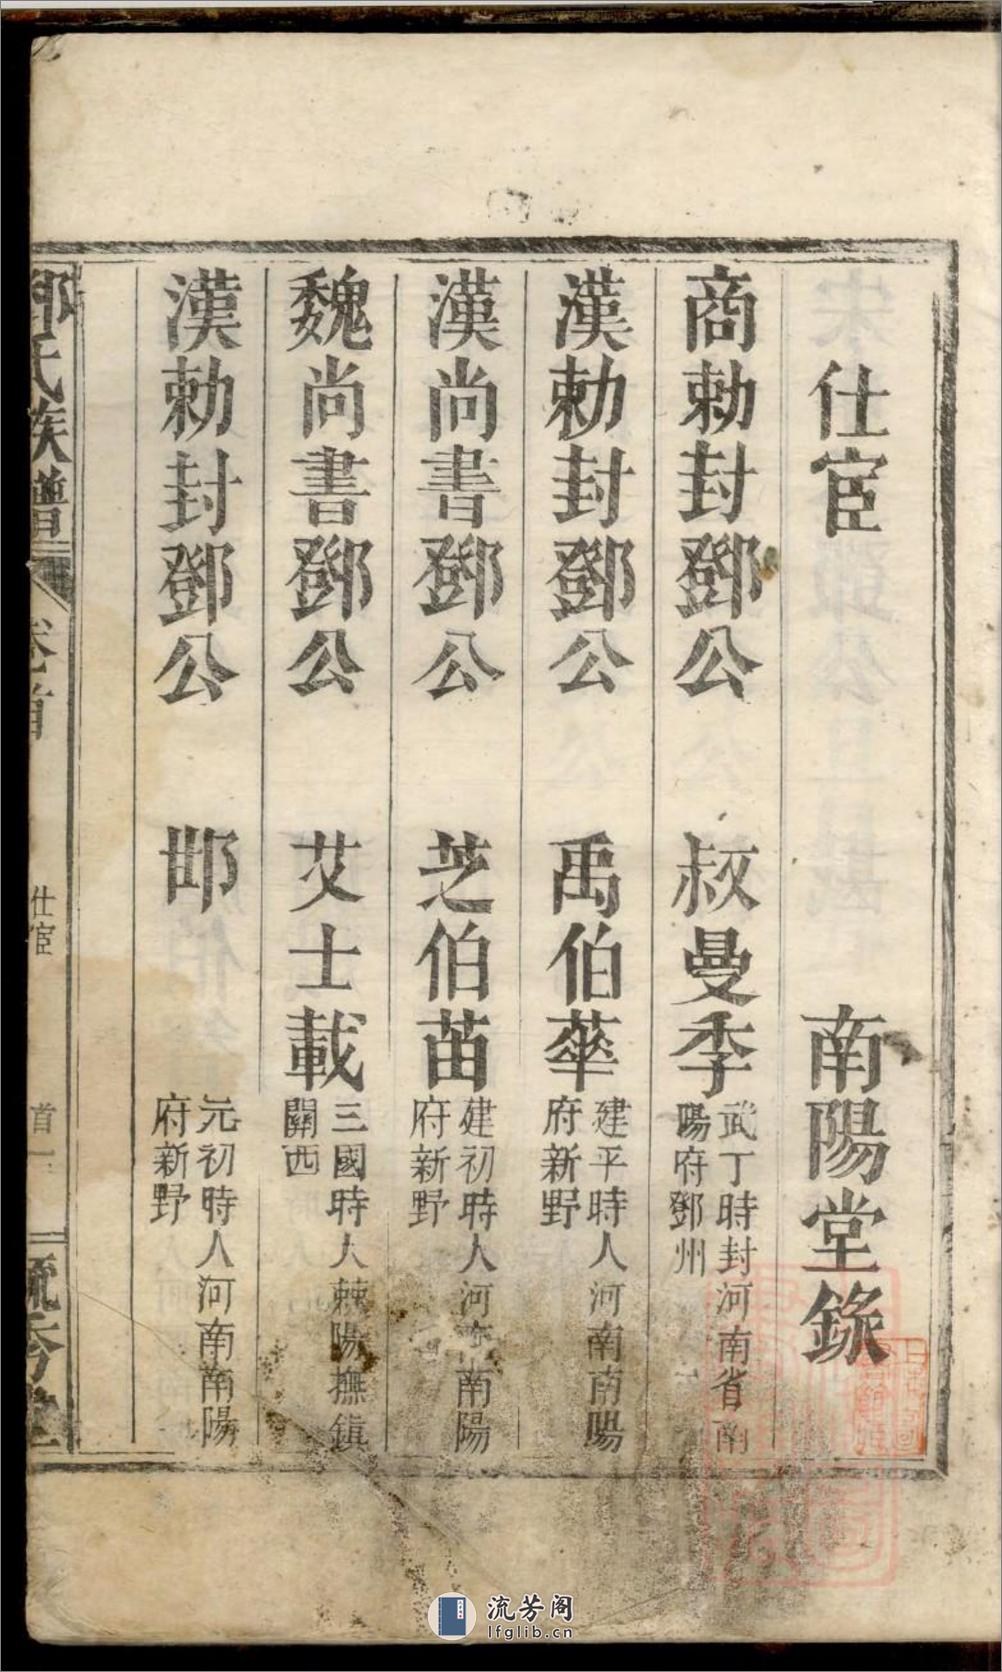 仕宦　南陽堂錄
商勅封鄧公　叔曼季　武丁時封河南省南
陽府鄧州
漢勅封鄧公　禹伯華　建平時人河南南陽
府新野
漢尚書鄧公　芝伯苗　建初時人河南南陽
府新野
魏尚書鄧公　艾士載　三國時人棘陽撫鎮
關西
漢勅封鄧公　邯　元初時人河南南陽
府新野
鄧氏族譜　卷首　仕宦　首一
流芳阁
lfglib.cn